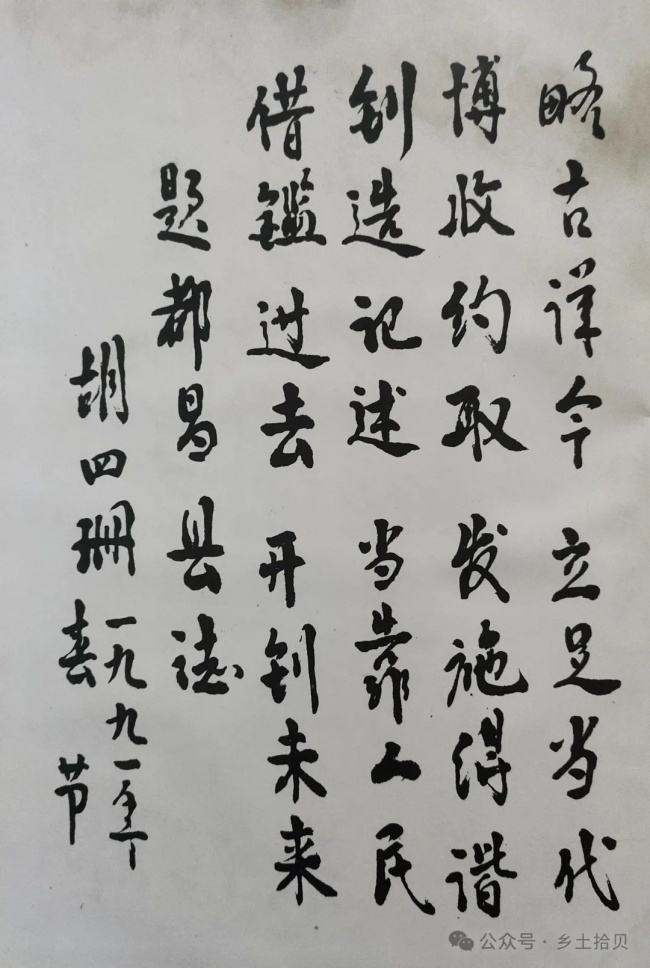 略古详今 立足当代
博收约取 发施得谐
创造记述 当靠人民
借鑑过去 开创未来
题都昌县誌
胡四珊 一九九一年
春节
公众号·乡土拾贝